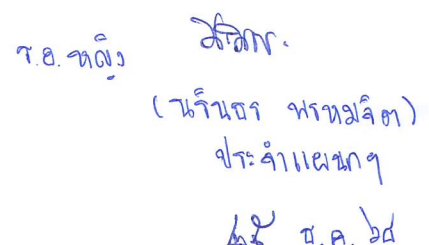 ร.อ. หญิง
(นรินธร พรหมจิต)
ประจำแผนกฯ
ธ.ค. ๖๕